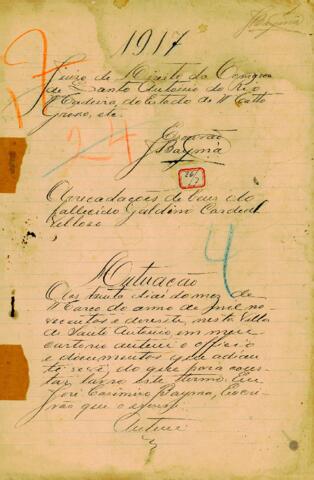 JBayma
1917
Juizo de Direito da Comarca
de Santo Antonio do Rio
Madeira, do Estado de Matto
Grosso, etc.
17
24
Escrivão
JBayma
26/17
Arrecadações de bens do
fallecido Galdino Cardoso
Velloso
4
Autuação
Aos trinta dias do mez de
Março do anno de mil no-
vecentos e desesete, nesta Villa
de Santo Antonio, em meu
cartorio autuei o officio
e documentos que adian
te se vê, do que para cons-
tar, lavro este termo. Eu
José Casimiro Bayma, Escri-
vão que o escrevi
Autuei